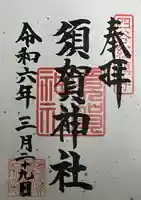 奉拝
須賀神社
令和六年三月二九日